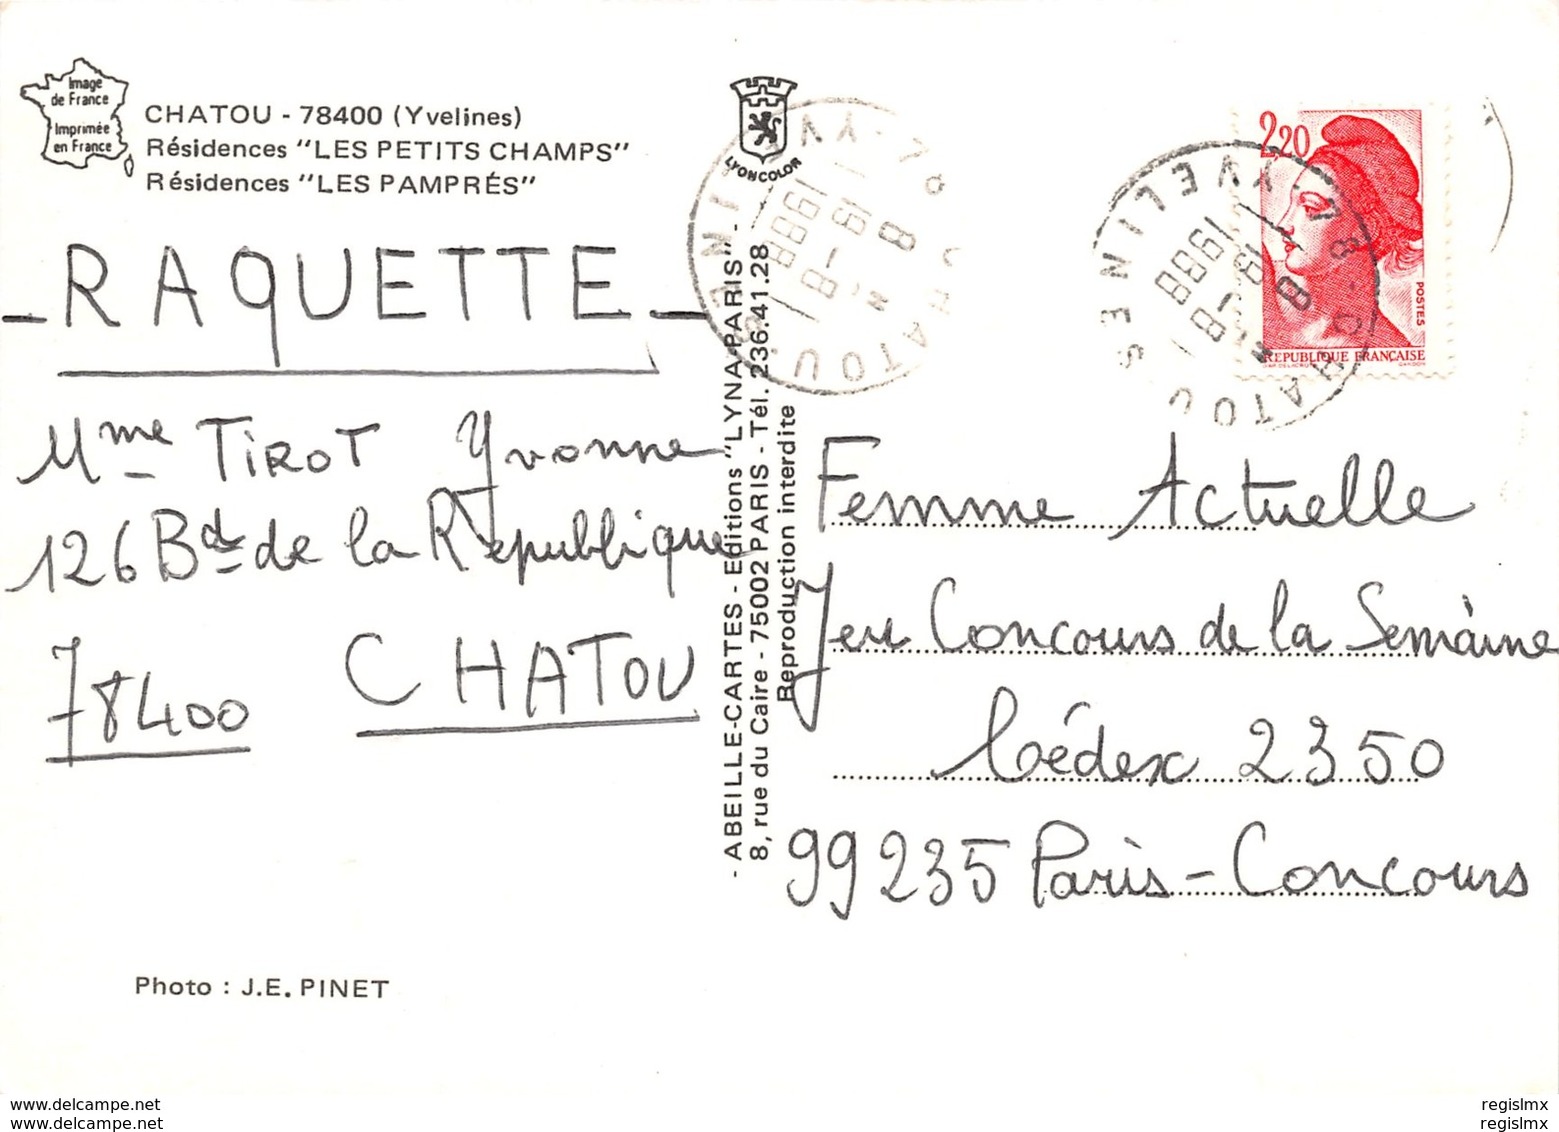 Image
de France
Imprimée
en France
CHATOU - 78400 (Yvelines)
Résidences "LES PETITS CHAMPS"
Résidences "LES PAMPRÉS"
- RAQUETTE -
Mme TIROT Yvonne
126 Bd de la République
78400 CHATOU
Photo : J.E. PINET
LYONCOLOR
- ABEILLE-CARTES - Editions "LYNA-PARIS" -
8, rue du Caire - 75002 PARIS - Tél. 236.41.28
Reproduction interdite
78 CHATOU
1988
2,20
POSTES
REPUBLIQUE FRANÇAISE
78 - CHATOU
YVELINES
1988
Femme Actuelle
Jeu Concours de la Semaine
Cédex 2350
99235 Paris - Concours
www.delcampe.net
www.delcampe.net
regislmx
regislmx